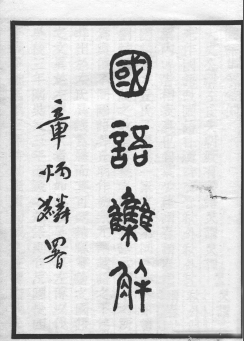 國語集解
章炳麟署